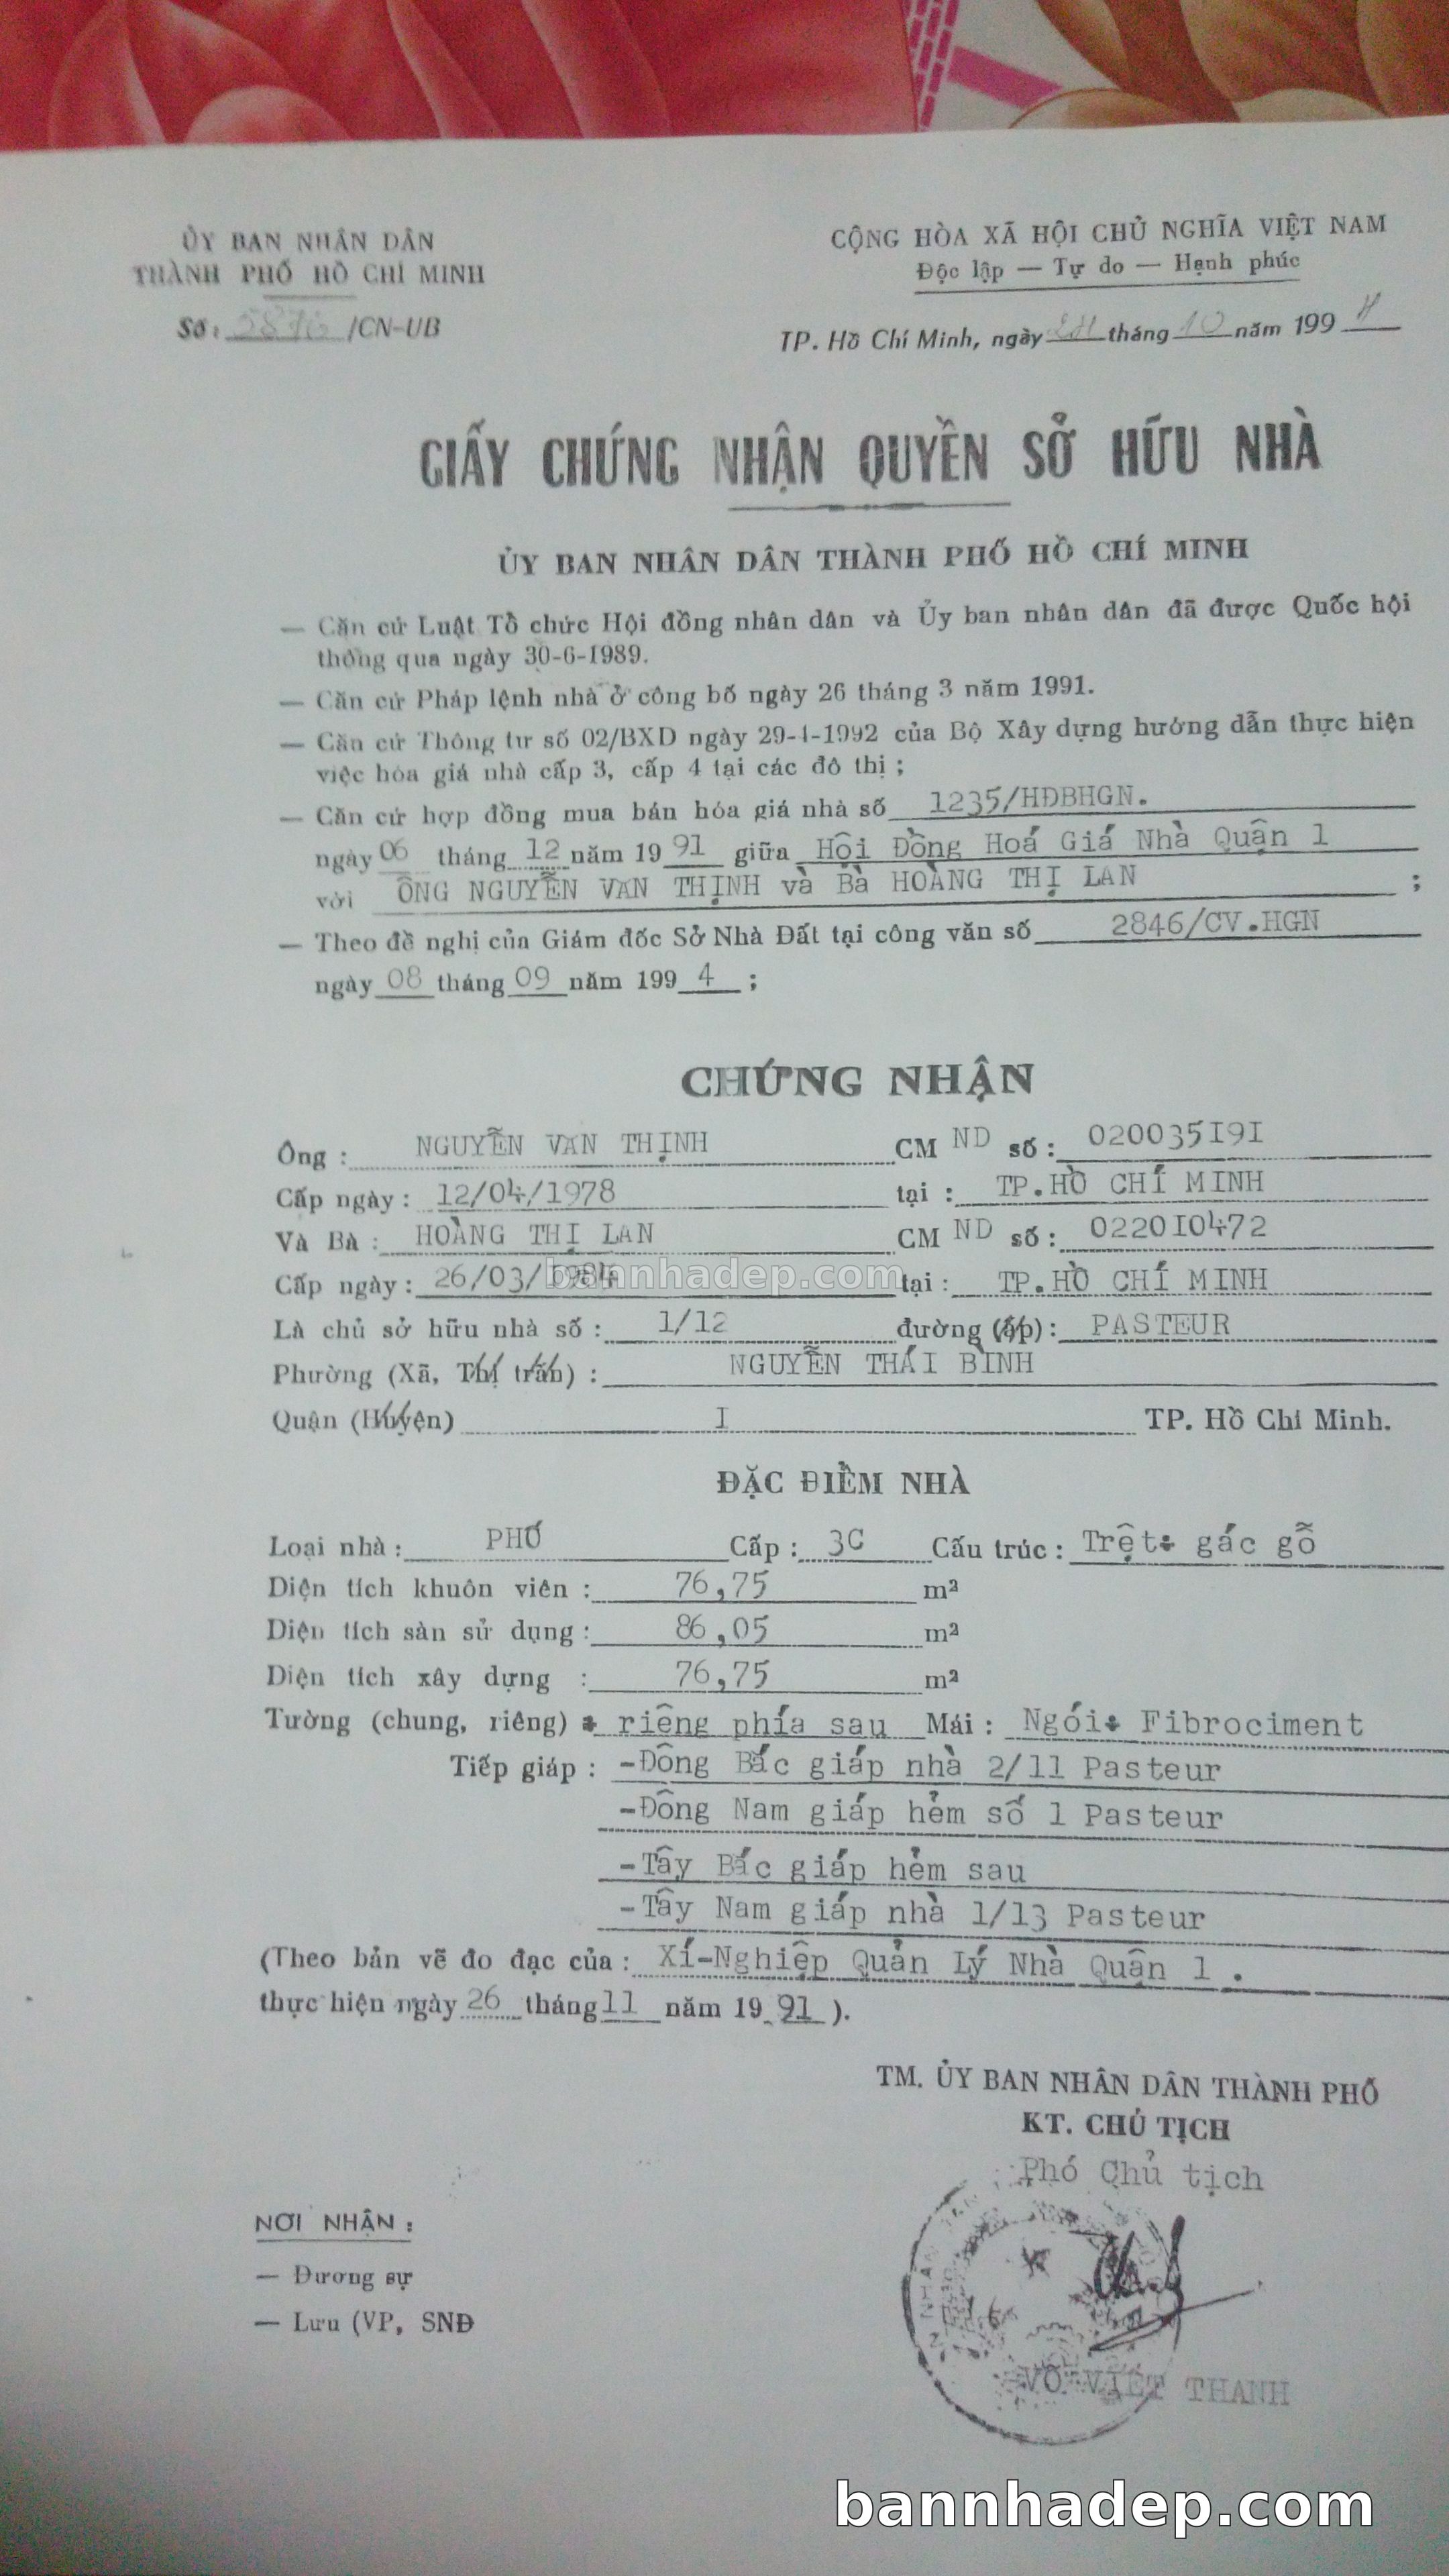 ỦY BAN NHÂN DÂN
THÀNH PHỐ HỒ CHÍ MINH
Số: 5876 /CN-UB
CỘNG HÒA XÃ HỘI CHỦ NGHĨA VIỆT NAM
Độc lập — Tự do — Hạnh phúc
TP. Hồ Chí Minh, ngày tháng 10 năm 199
GIẤY CHỨNG NHẬN QUYỀN SỞ HỮU NHÀ
ỦY BAN NHÂN DÂN THÀNH PHỐ HỒ CHÍ MINH
— Căn cứ Luật Tổ chức Hội đồng nhân dân và Ủy ban nhân dân đã được Quốc hội
thông qua ngày 30-6-1989.
— Căn cứ Pháp lệnh nhà ở công bố ngày 26 tháng 3 năm 1991.
— Căn cứ Thông tư số 02/BXD ngày 29-4-1992 của Bộ Xây dựng hướng dẫn thực hiện
việc hóa giá nhà cấp 3, cấp 4 tại các đô thị ;
— Căn cứ hợp đồng mua bán hóa giá nhà số 1235/HĐBHGN.
ngày 06 tháng 12 năm 19 91 giữa Hội Đồng Hoá Giá Nhà Quận 1
với ÔNG NGUYỄN VAN THỊNH và Bà HOÀNG THỊ LAN ;
— Theo đề nghị của Giám đốc Sở Nhà Đất tại công văn số 2846/CV.HGN
ngày 08 tháng 09 năm 199 4 ;
CHỨNG NHẬN
Ông : NGUYỄN VAN THỊNH CM ND số : 020035I9I
Cấp ngày : 12/04/1978 tại : TP.HỒ CHÍ MINH
Và Bà : HOÀNG THỊ LAN CM ND số : 022010472
Cấp ngày : 26/03/1984 tại : TP.HỒ CHÍ MINH
bannhadep.com
Là chủ sở hữu nhà số : 1/12 đường (ấp) : PASTEUR
Phường (Xã, Thị trấn) : NGUYỄN THÁI BÌNH
Quận (Huyện) I TP. Hồ Chí Minh.
ĐẶC ĐIỂM NHÀ
Loại nhà : PHỐ Cấp : 3C Cấu trúc : Trệt+ gác gỗ
Diện tích khuôn viên : 76,75 m²
Diện tích sàn sử dụng : 86,05 m²
Diện tích xây dựng : 76,75 m²
Tường (chung, riêng) + riêng phía sau Mái : Ngói+ Fibrociment
Tiếp giáp : -Đông Bắc giáp nhà 2/11 Pasteur
-Đông Nam giáp hẻm số 1 Pasteur
-Tây Bắc giáp hẻm sau
-Tây Nam giáp nhà 1/13 Pasteur
(Theo bản vẽ đo đạc của : Xí-Nghiệp Quản Lý Nhà Quận 1 .
thực hiện ngày 26 tháng 11 năm 19 91 ).
TM. ỦY BAN NHÂN DÂN THÀNH PHỐ
KT. CHỦ TỊCH
Phó Chủ tịch
NƠI NHẬN :
— Đương sự
— Lưu (VP, SNĐ
VÕ VIẾT THANH
bannhadep.com